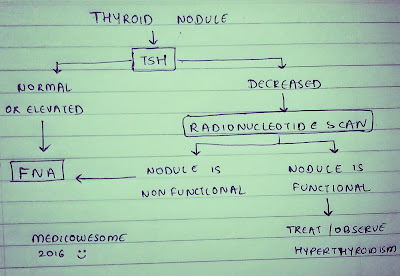 THYROID NODULE
TSH
NORMAL
OR ELEVATED
DECREASED
RADIONUCLEOTIDE SCAN
FNA
NODULE IS
NONFUNCTIONAL
NODULE IS
FUNCTIONAL
TREAT / OBSERVE
HYPERTHYROIDISM
MEDICOWESOME
2016